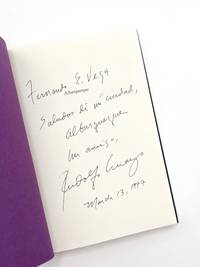 Fernando E. Vega
Alburquerque
Saludos di mi ciudad,
Alburquerque
Un amigo,
Rudolfo Anaya
March 13, 1997